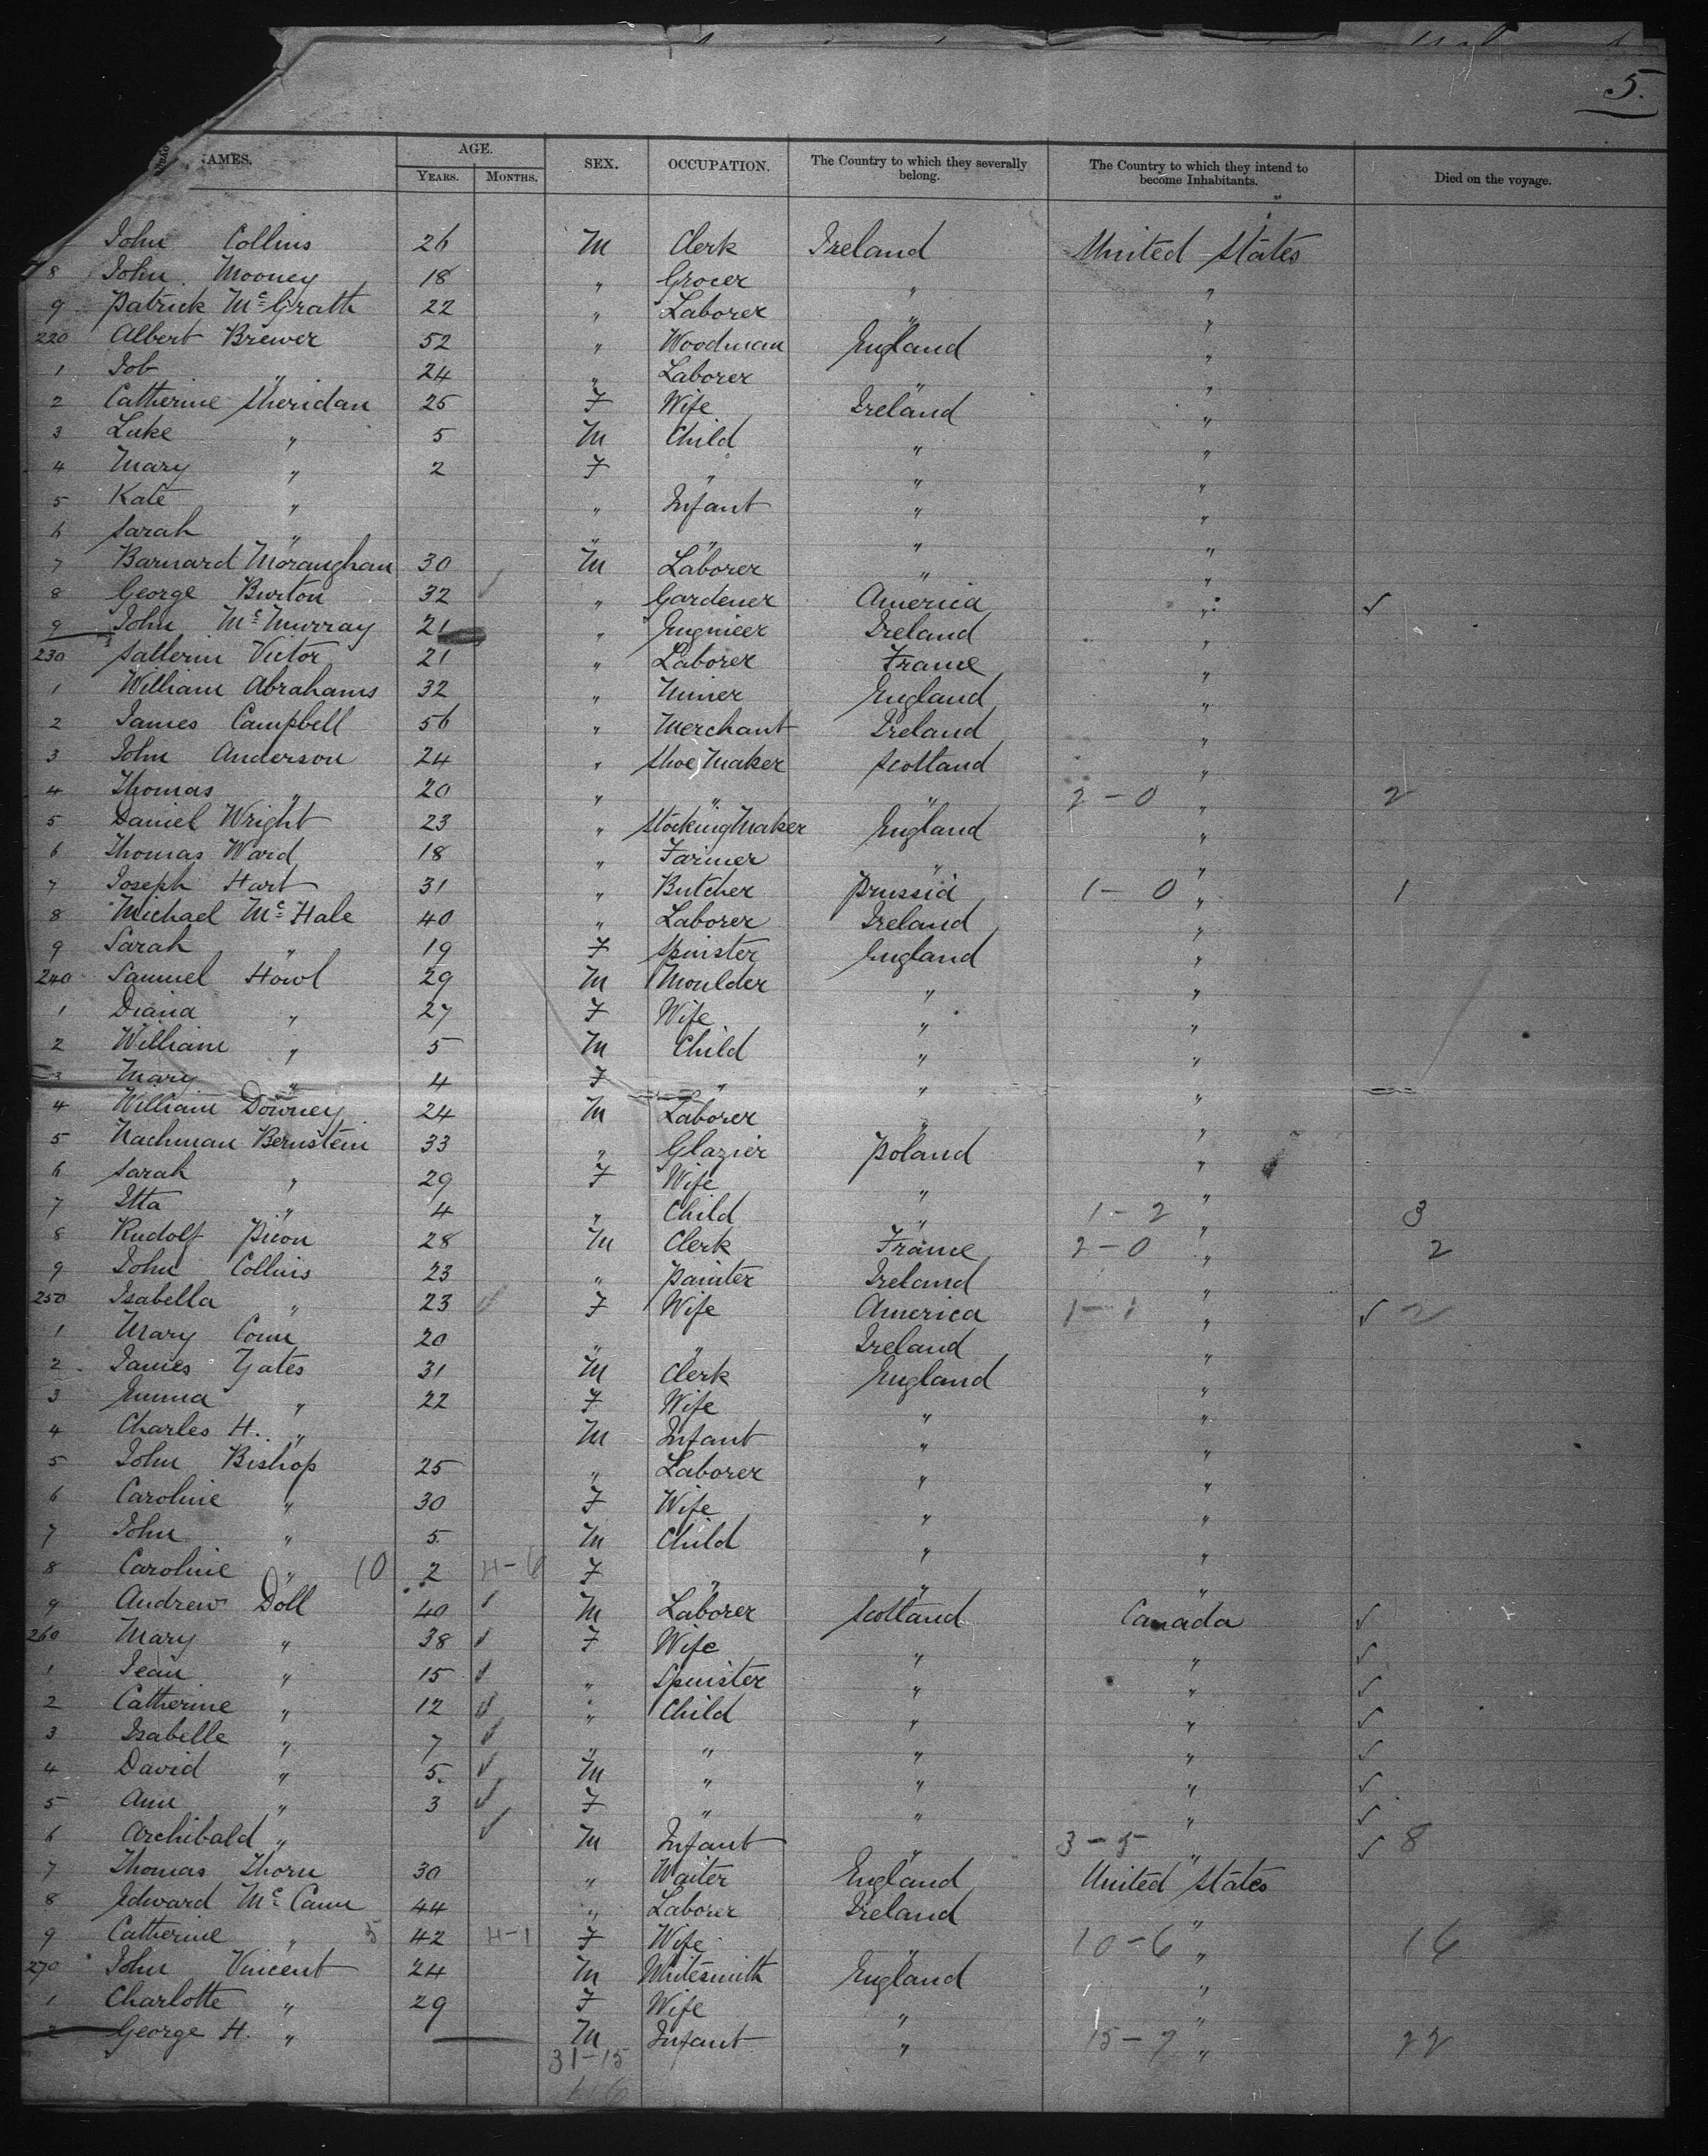 5.
NAMES. AGE. YEARS. MONTHS. SEX. OCCUPATION. The Country to which they severally belong. The Country to which they intend to become Inhabitants. Died on the voyage.
John Collins 26 M Clerk Ireland United States
8 John Mooney 18 " Grocer " "
9 Patrick Mc Grath 22 " Laborer " "
220 Albert Brewer 52 " Woodman England "
1 Job " 24 " Laborer " "
2 Catherine Sheridan 25 F Wife Ireland "
3 Luke " 5 M Child " "
4 Mary " 2 F " " "
5 Kate " " Infant " "
6 Sarah " " " " "
7 Barnard Moraughan 30 M Laborer " "
8 George Burton 32 " Gardener America " ✓
9 John Mc Murray 21 " Engineer Ireland "
230 Victor 21 " Laborer France "
1 William Abrahams 32 " Miner England "
2 James Campbell 56 " Merchant Ireland "
3 John Anderson 24 " Shoe Maker Scotland "
4 Thomas " 20 " " " 2-0 " 2
5 Daniel Wright 23 " Stocking Maker England "
6 Thomas Ward 18 " Farmer " "
7 Joseph Hart 31 " Butcher Prussia 1-0 " 1
8 Michael Mc Hale 40 " Laborer Ireland "
9 Sarah " 19 F Spinster England "
240 Samuel Howl 29 M Moulder " "
1 Diana " 27 F Wife " "
2 William " 5 M Child " "
3 Mary " 4 F " " "
4 William Downey 24 M Laborer " "
5 Nachman Bernstein 33 " Glazier Poland "
6 Sarah " 29 F Wife " "
7 Itta " 4 " Child " 1-2 " 3
8 Rudolf Picon 28 M Clerk France 2-0 " 2
9 John Collins 23 " Painter Ireland "
250 Isabella " 23 ✓ F Wife America 1-1 " ✓ 2
1 Mary Conn 20 " " Ireland "
2 James Yates 31 M Clerk England "
3 Emma " 22 F Wife " "
4 Charles H. " M Infant " "
5 John Bishop 25 " Laborer " "
6 Caroline " 30 F Wife " "
7 John " 5 M Child " "
8 Caroline " 10 2 H-6 F " " "
9 Andrew Doll 40 ✓ M Laborer Scotland Canada ✓
260 Mary " 38 ✓ F Wife " " ✓
1 Jean " 15 ✓ " Spinster " " ✓
2 Catherine " 12 ✓ " Child " " ✓
3 Isabelle " 7 ✓ " " " " ✓
4 David " 5 ✓ M " " " ✓
5 Ann " 3 ✓ F " " " ✓
6 Archibald " ✓ M Infant " 3-5 " ✓ 8
7 Thomas Thorn 30 " Waiter England United States
8 Edward Mc Cann 44 " Laborer Ireland "
9 Catherine " 5 42 H-1 F Wife " 10-6 " 16
270 John Vincent 24 M Whitesmith England "
1 Charlotte " 29 F Wife " "
2 George H. " M Infant " 15-7 " 22
31-15